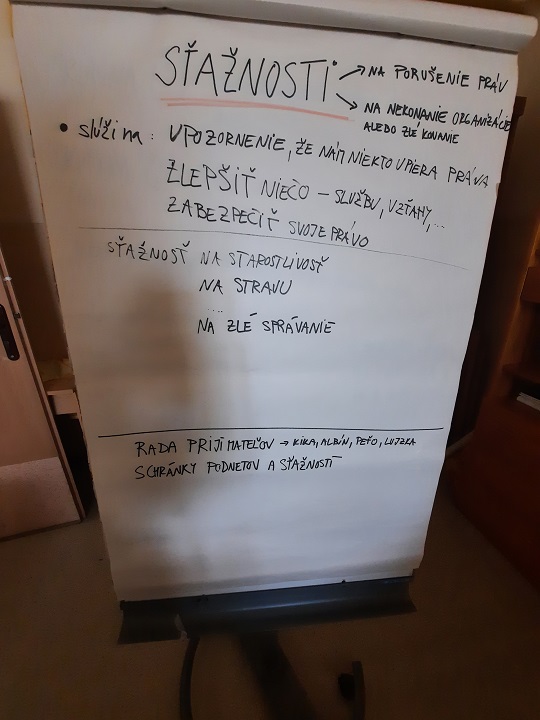 SŤAŽNOSTI → NA PORUŠENIE PRÁV
→ NA NEKONANIE ORGANIZÁCIE
ALEBO ZLÉ KONANIE
• slúži na: UPOZORNENIE, ŽE NÁM NIEKTO UPIERA PRÁVA
ZLEPŠIŤ NIEČO – SLUŽBU, VZŤAHY,...
ZABEZPEČIŤ SVOJE PRÁVO
SŤAŽNOSŤ NA STAROSTLIVOSŤ
NA STRAVU
....
NA ZLÉ SPRÁVANIE
RADA PRIJÍMATEĽOV → KIKA, ALBÍN, PEŤO, LUJZKA
SCHRÁNKY PODNETOV A SŤAŽNOSTÍ